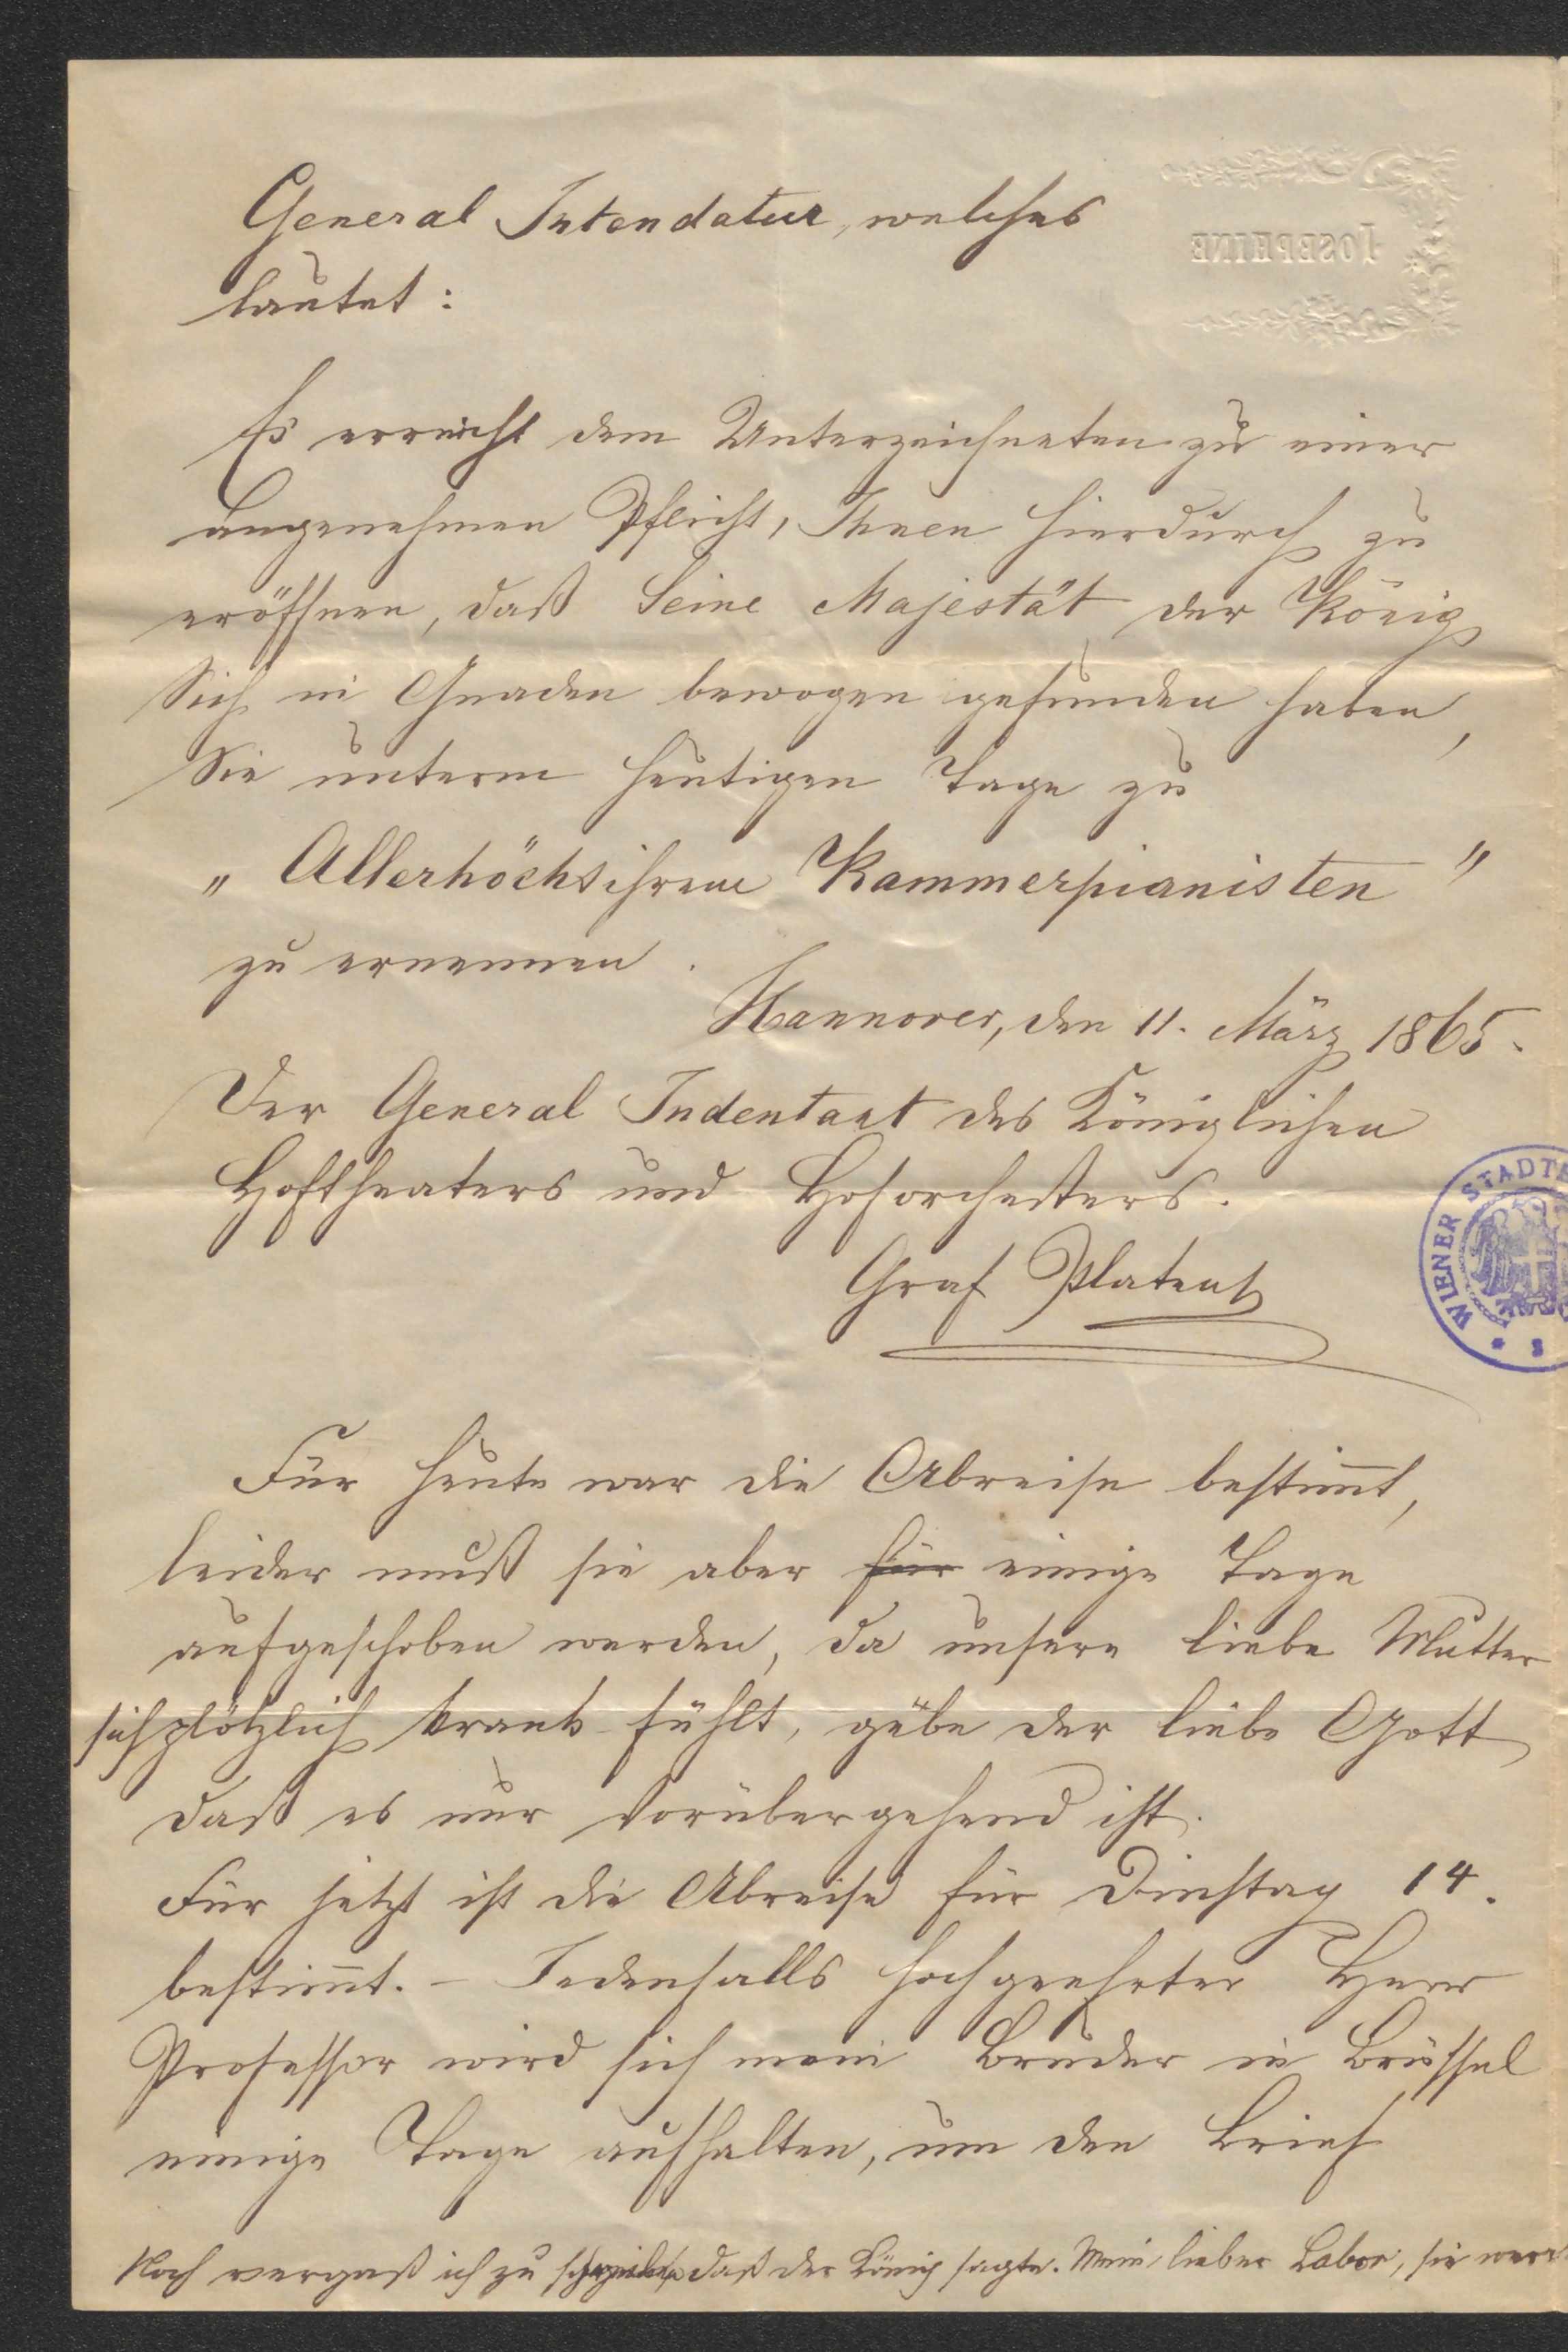 JOSEPHINE
General Intendatur, welches
lautet:
Es erreicht dem Unterzeichneten zu einer
angenehmen Pflicht, Ihnen hierdurch zu
eröffnen, daß Seine Majestät der König
Sich in Gnaden bewogen gefunden haben,
Sie unterm heutigen Tage zu
„Allerhöchstihrem Kammerpianisten"
zu ernennen.
Hannover, den 11. März 1865.
Der General Indentant des Königlichen
Hoftheaters und Hoforchesters.
WIENER STADT
Graf Platen
Für heute war die Abreise bestimt,
leider muß sie aber für einige Tage
aufgeschoben werden, da unsere liebe Mutter
sich plötzlich krank fühlt, gäbe der liebe Gott
daß es nur vorübergehend ist.
Für jetzt ist die Abreise für Dinstag 14.
bestimt. – Jedenfalls hochgeehrter Herr
Professor wird sich mein Bruder in Brüssel
einige Tage aufhalten, um den Brief
Noch vergaß ich zu daß der König sagte. Mein lieber Labor, sie werd